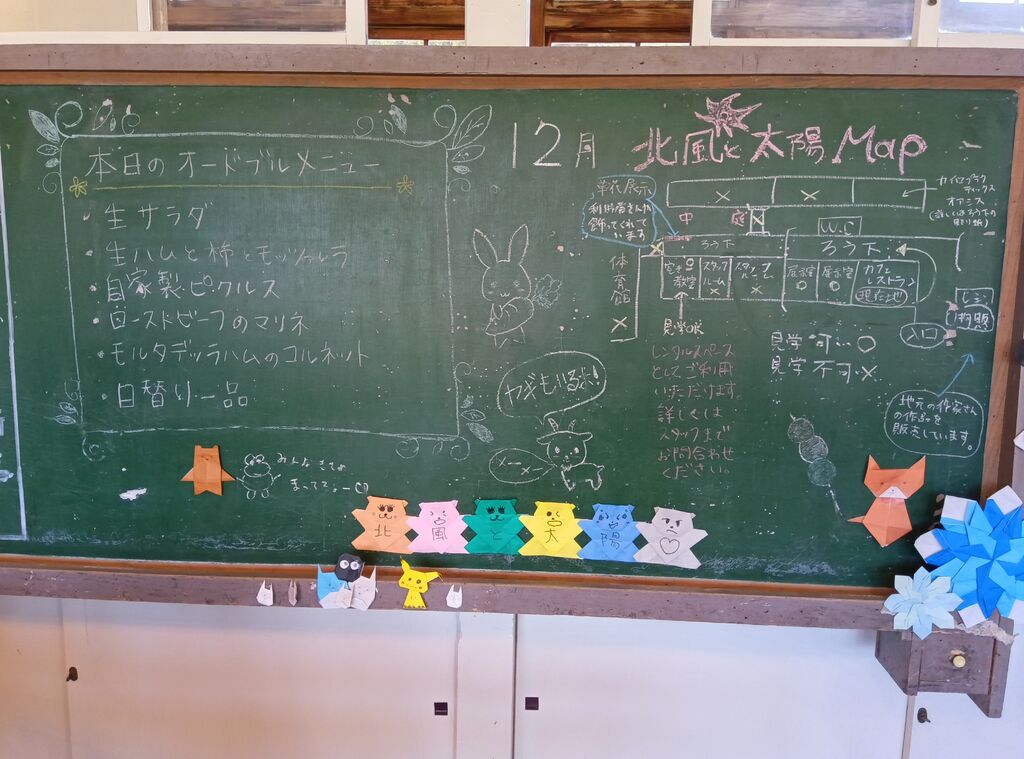 本日のオードブルメニュー
・生サラダ
・生ハムと柿とモッツァレラ
・自家製ピクルス
・ローストビーフのマリネ
・モルタデッラハムのコルネット
・日替り一品
みんなきてね
まってるよー
12月
北風と太陽 Map
草花展示
利用者さんが
飾ってくれて
います
中 庭
カイロプラク
ティックス
オアシス
W.C
ろう下
ろう下
体育館
×
空き
教室
スタッフ
ルーム
×
スタッフ
ルーム
×
展示室
○
展示室
○
カフェ
レストラン
現在地
入口
レジ
物販
見学OK
見学 可…○
見学 不可…×
レンタルスペース
としてご利用
いただけます
詳しくは
スタッフまで
お問合わせ
ください。
地元の作家さん
の作品を
販売しています。
ヤギもいるよ!
メーメー
北 風 と 太 陽